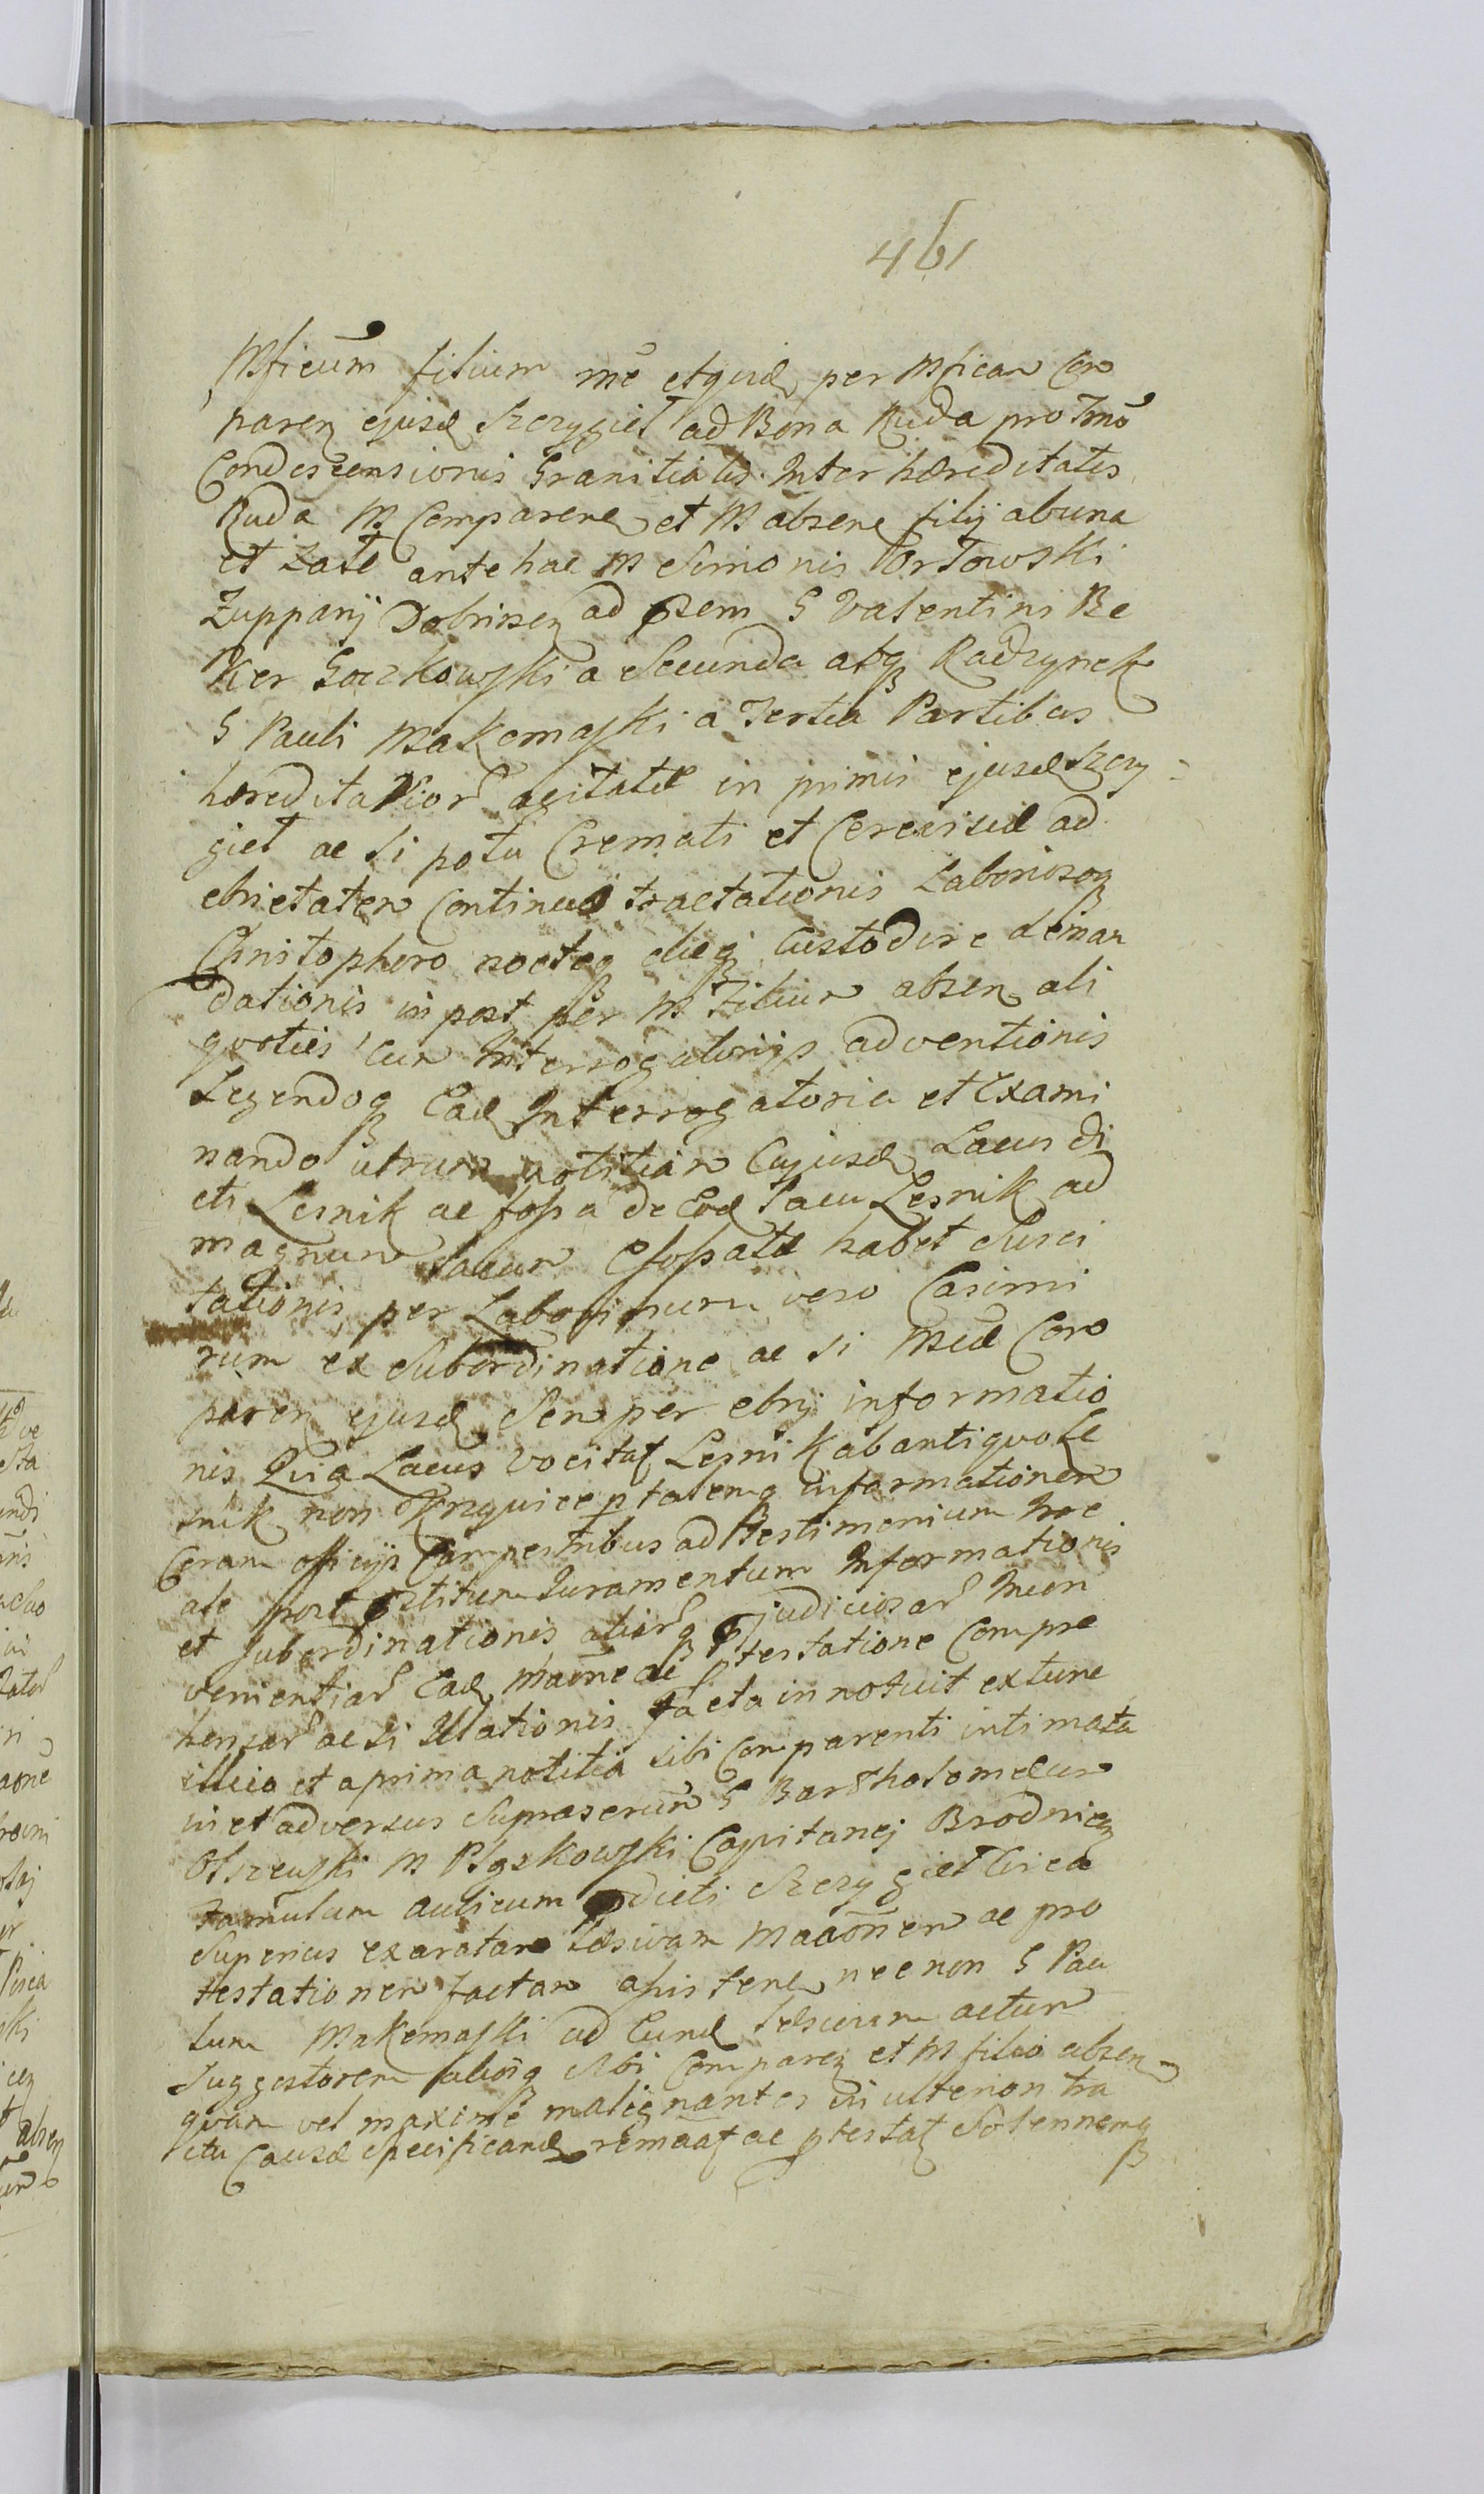 461
Mficum filium mē etquid per Mficam Com
paren ejusd Szczygieł ad Bona Ruda pro Tmō
Condescensionis Granitialis Inter hæreditates
Ruda M Comparene et M absene filij ab una
et Zale antehac M Simonis Orłowski
Zuppanj Dobrinen ad psem G Valentini Be
ker Goczkowski a Secunda atq Radzynek
G Pauli Makomaski a Tertia Partibus
hæreditarior agitatæ in primis ejusd Szczy=
gieł ac si potu Cremati et Cerevisiæ ad
ebrietatem Continuæ tractationis Laborioso
Christophoro nocteq dieq Custodire deman
dationis in post per M Filium absen ali
quoties cum Interrogatorijs adventionis
Legendoq Ead Interrogatoria et Exami
nando utrum notitiam Cujusd Lacus di
cti Lesnik ac fossa de Eod Lacu Lesnik ad
magnum Lacum Efossatæ habet Susci
tationis per Laboriosum vero Casimi
rum ex Subordinatione ac si Meæ Com
paren ejusd Semper ebrij informatio
nis Quia Lacus vocitat Lesnik ab antiquo Le
snik non talemq informationem
Coram officijs Campestribus ad testimonium hoc
ale post pstitum Juramentum Informationis
et Subordinationis aliorq pjudiciosar Incon
venientiar Ead Maōne ac Ptestatione Compre
hensar ac si Illationis facta innotuit extunc
illico et a prima notitia sibi Comparenti intimata
in et adversus Suprascrum G Bartholomæum
Olszewski M Pląskowski Capitanej Brodnicen
Famulum aulicum pdicti Szczygieł Circa
Superius exaratam Læsivam Maaōnem ac pro
testationem factam assistene necnon G Pau
lum Makomaski ad Eund Læsivum actum
Suggestorem aliosq Sibi Comparen et M filio absen
quam vel maxime malignantes in ulteriori tra
ctu Causæ Specificand remaat ac ptestat Solennemq